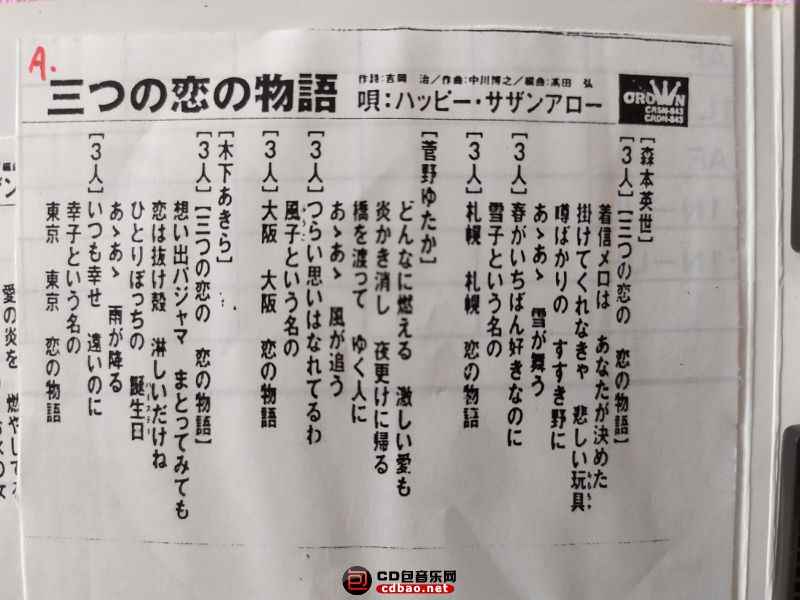 A.
三つの恋の物語
作詩:吉岡 治/作曲:中川博之/編曲:高田 弘
唄:ハッピー・サザンアロー
CROWN
CRSN-843
CRDN-843
[森本英世]
[3人][三つの恋の 恋の物語]
着信メロは あなたが決めた
掛けてくれなきゃ 悲しい玩具
噂ばかりの すすき野に
あゝあゝ 雪が舞う
[3人]春がいちばん好きなのに
雪子という名の
[3人]札幌 札幌 恋の物語
[菅野ゆたか]
どんなに燃える 激しい愛も
炎かき消し 夜更けに帰る
橋を渡って ゆく人に
あゝあゝ 風が追う
[3人]つらい思いはなれてるわ
風子という名の
[3人]大阪 大阪 恋の物語
[木下あきら]
[3人][三つの恋の 恋の物語]
想い出パジャマ まとってみても
恋は抜け殻 淋しいだけね
ひとりぼっちの 誕生日
あゝあゝ 雨が降る
[3人]いつも幸せ 遠いのに
幸子という名の
東京 東京 恋の物語
愛の炎を
燃やして
CD包音乐网
cdbao.net